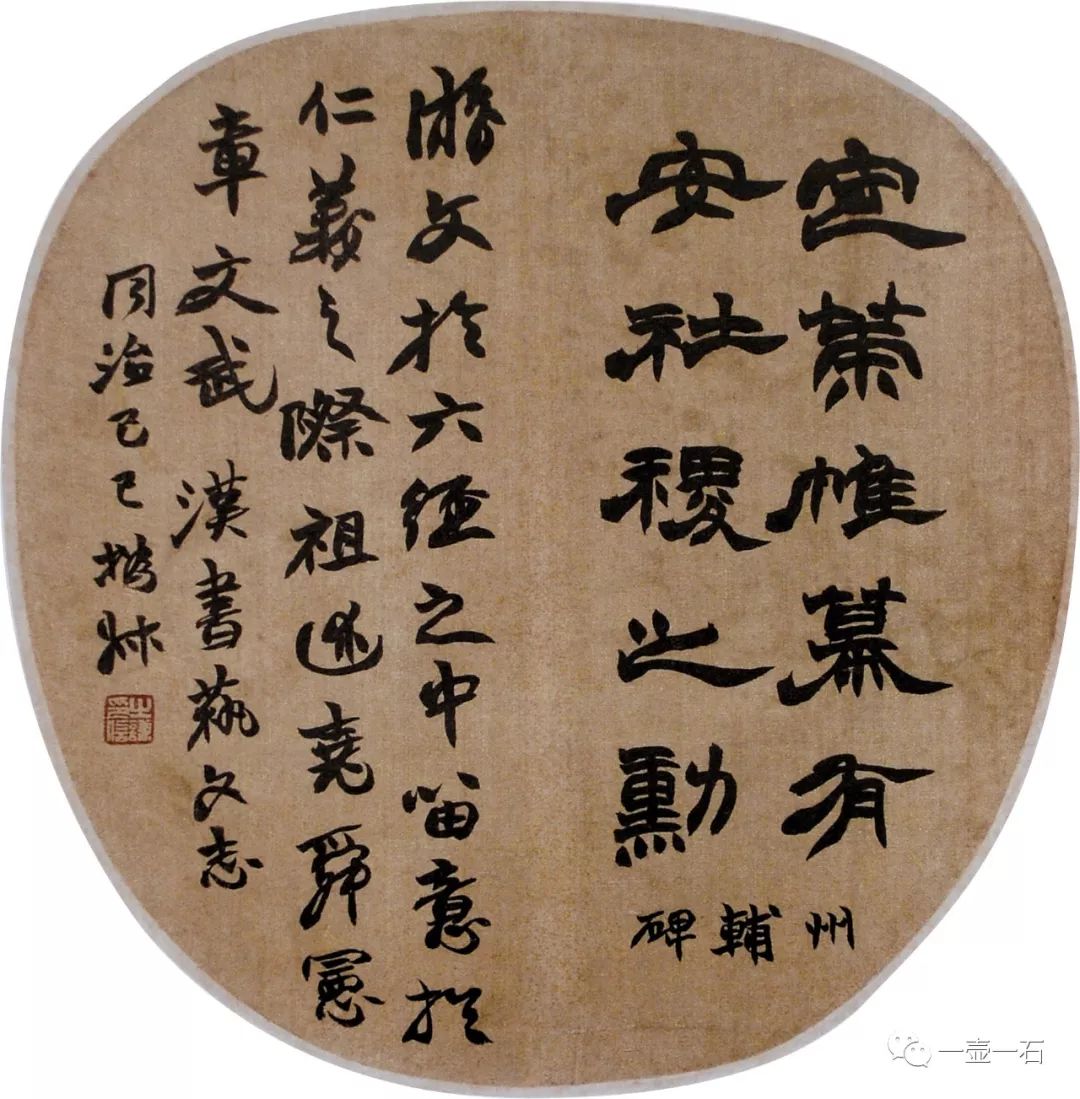 定策帷幕有
安社稷之勳
州輔碑
游文於六經之中留意於
仁義之際祖述堯舜憲
章文武 漢書蓺文志
同治己巳撝叔
一壶一石